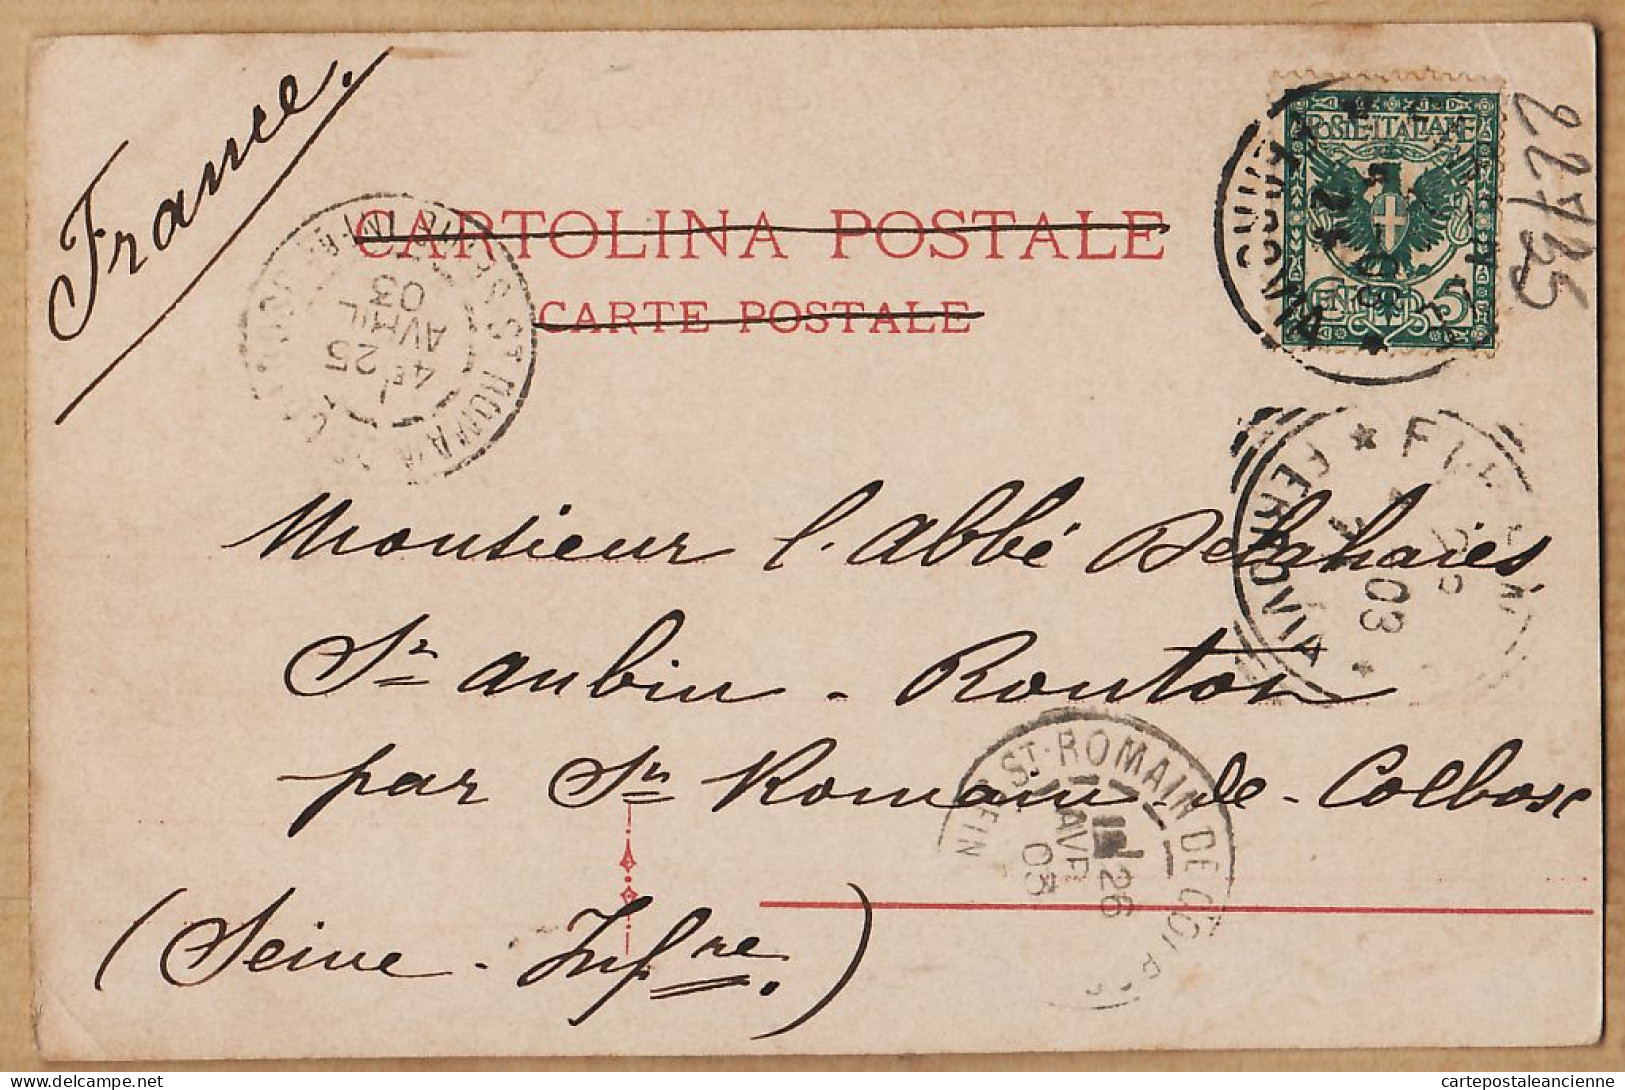 France.
22725
POSTE·ITALIANE
CENT. 5
CARTOLINA POSTALE
CARTE POSTALE
4E / 25
AVRIL
03
FERROVIA
03
Monsieur l'abbé Delahaies
St Aubin - Routot
par St Romain-de-Colbosc
(Seine-Infre.)
ST-ROMAIN DE COLBOSC
26
AVR
03
cartepostaleancienne
www.cartepostaleancienne.com